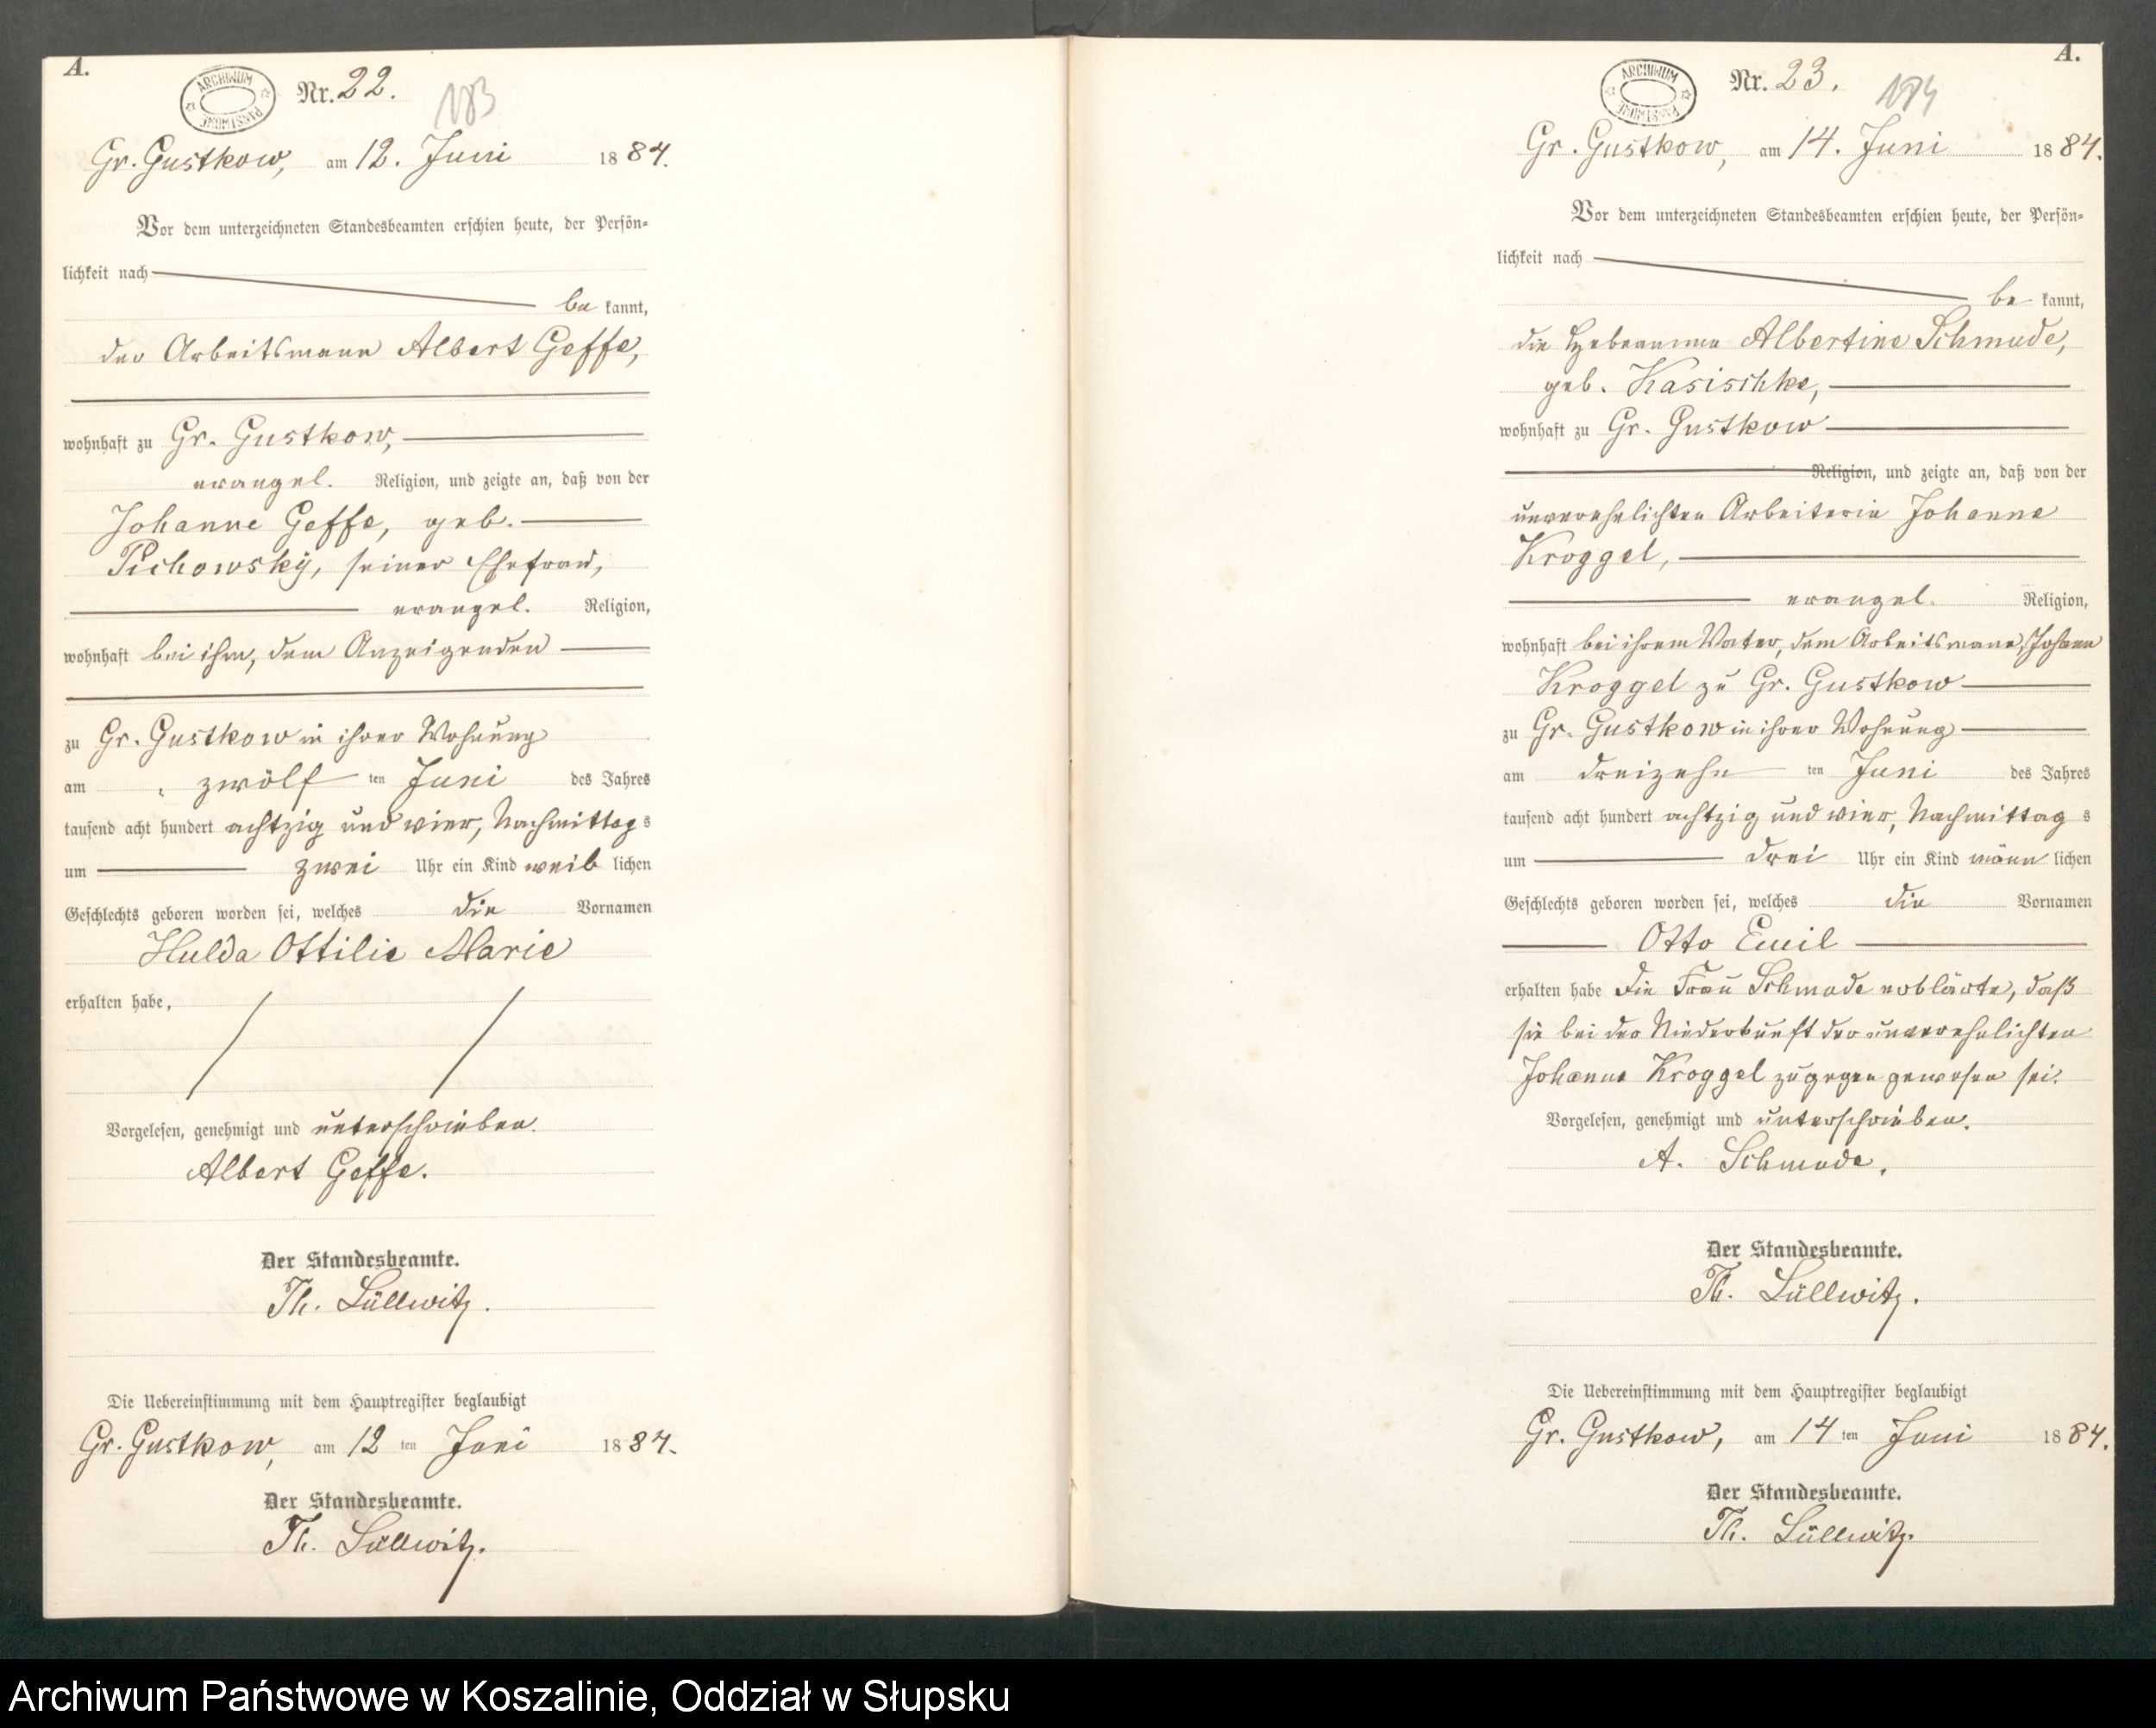 A.
ARCHIWUM PAŃSTWOWE
Nr. 22.
183
Gr. Gustkow, am 12. Juni 1884.
Vor dem unterzeichneten Standesbeamten erschien heute, der Persön-
lichkeit nach
be kannt,
der Arbeitsmann Albert Geffe,
wohnhaft zu Gr. Gustkow,
evangel. Religion, und zeigte an, daß von der
Johanne Geffe, geb.
Pichowsky, seiner Ehefrau,
evangel. Religion,
wohnhaft bei ihm, dem Anzeigenden
zu Gr. Gustkow in ihrer Wohnung
am zwölf ten Juni des Jahres
tausend acht hundert achtzig und vier, Nachmittags
um zwei Uhr ein Kind weib lichen
Geschlechts geboren worden sei, welches die Vornamen
Hulda Ottilie Marie
erhalten habe,
Vorgelesen, genehmigt und unterschrieben.
Albert Geffe.
Der Standesbeamte.
Th. Lüllwitz.
Die Uebereinstimmung mit dem Hauptregister beglaubigt
Gr. Gustkow, am 12 ten Juni 1884.
Der Standesbeamte.
Th. Lüllwitz.
A.
ARCHIWUM PAŃSTWOWE
Nr. 23.
184
Gr. Gustkow, am 14. Juni 1884.
Vor dem unterzeichneten Standesbeamten erschien heute, der Persön-
lichkeit nach
be kannt,
die Hebeamme Albertine Schmude,
geb. Kasischke,
wohnhaft zu Gr. Gustkow
Religion, und zeigte an, daß von der
unverehelichten Arbeiterin Johanne
Kroggel,
evangel. Religion,
wohnhaft bei ihrem Vater, dem Arbeitsmann, Johann
Kroggel zu Gr. Gustkow
zu Gr. Gustkow in ihrer Wohnung
am dreizehn ten Juni des Jahres
tausend acht hundert achtzig und vier, Nachmittag s
um drei Uhr ein Kind männ lichen
Geschlechts geboren worden sei, welches die Vornamen
Otto Emil
erhalten habe Die Frau Schmude erklärte, daß
sie bei der Niederkunft der unverehelichten
Johanne Kroggel zugegen gewesen sei.
Vorgelesen, genehmigt und unterschrieben.
A. Schmude.
Der Standesbeamte.
Th. Lüllwitz.
Die Uebereinstimmung mit dem Hauptregister beglaubigt
Gr. Gustkow, am 14 ten Juni 1884.
Der Standesbeamte.
Th. Lüllwitz.
Archiwum Państwowe w Koszalinie, Oddział w Słupsku